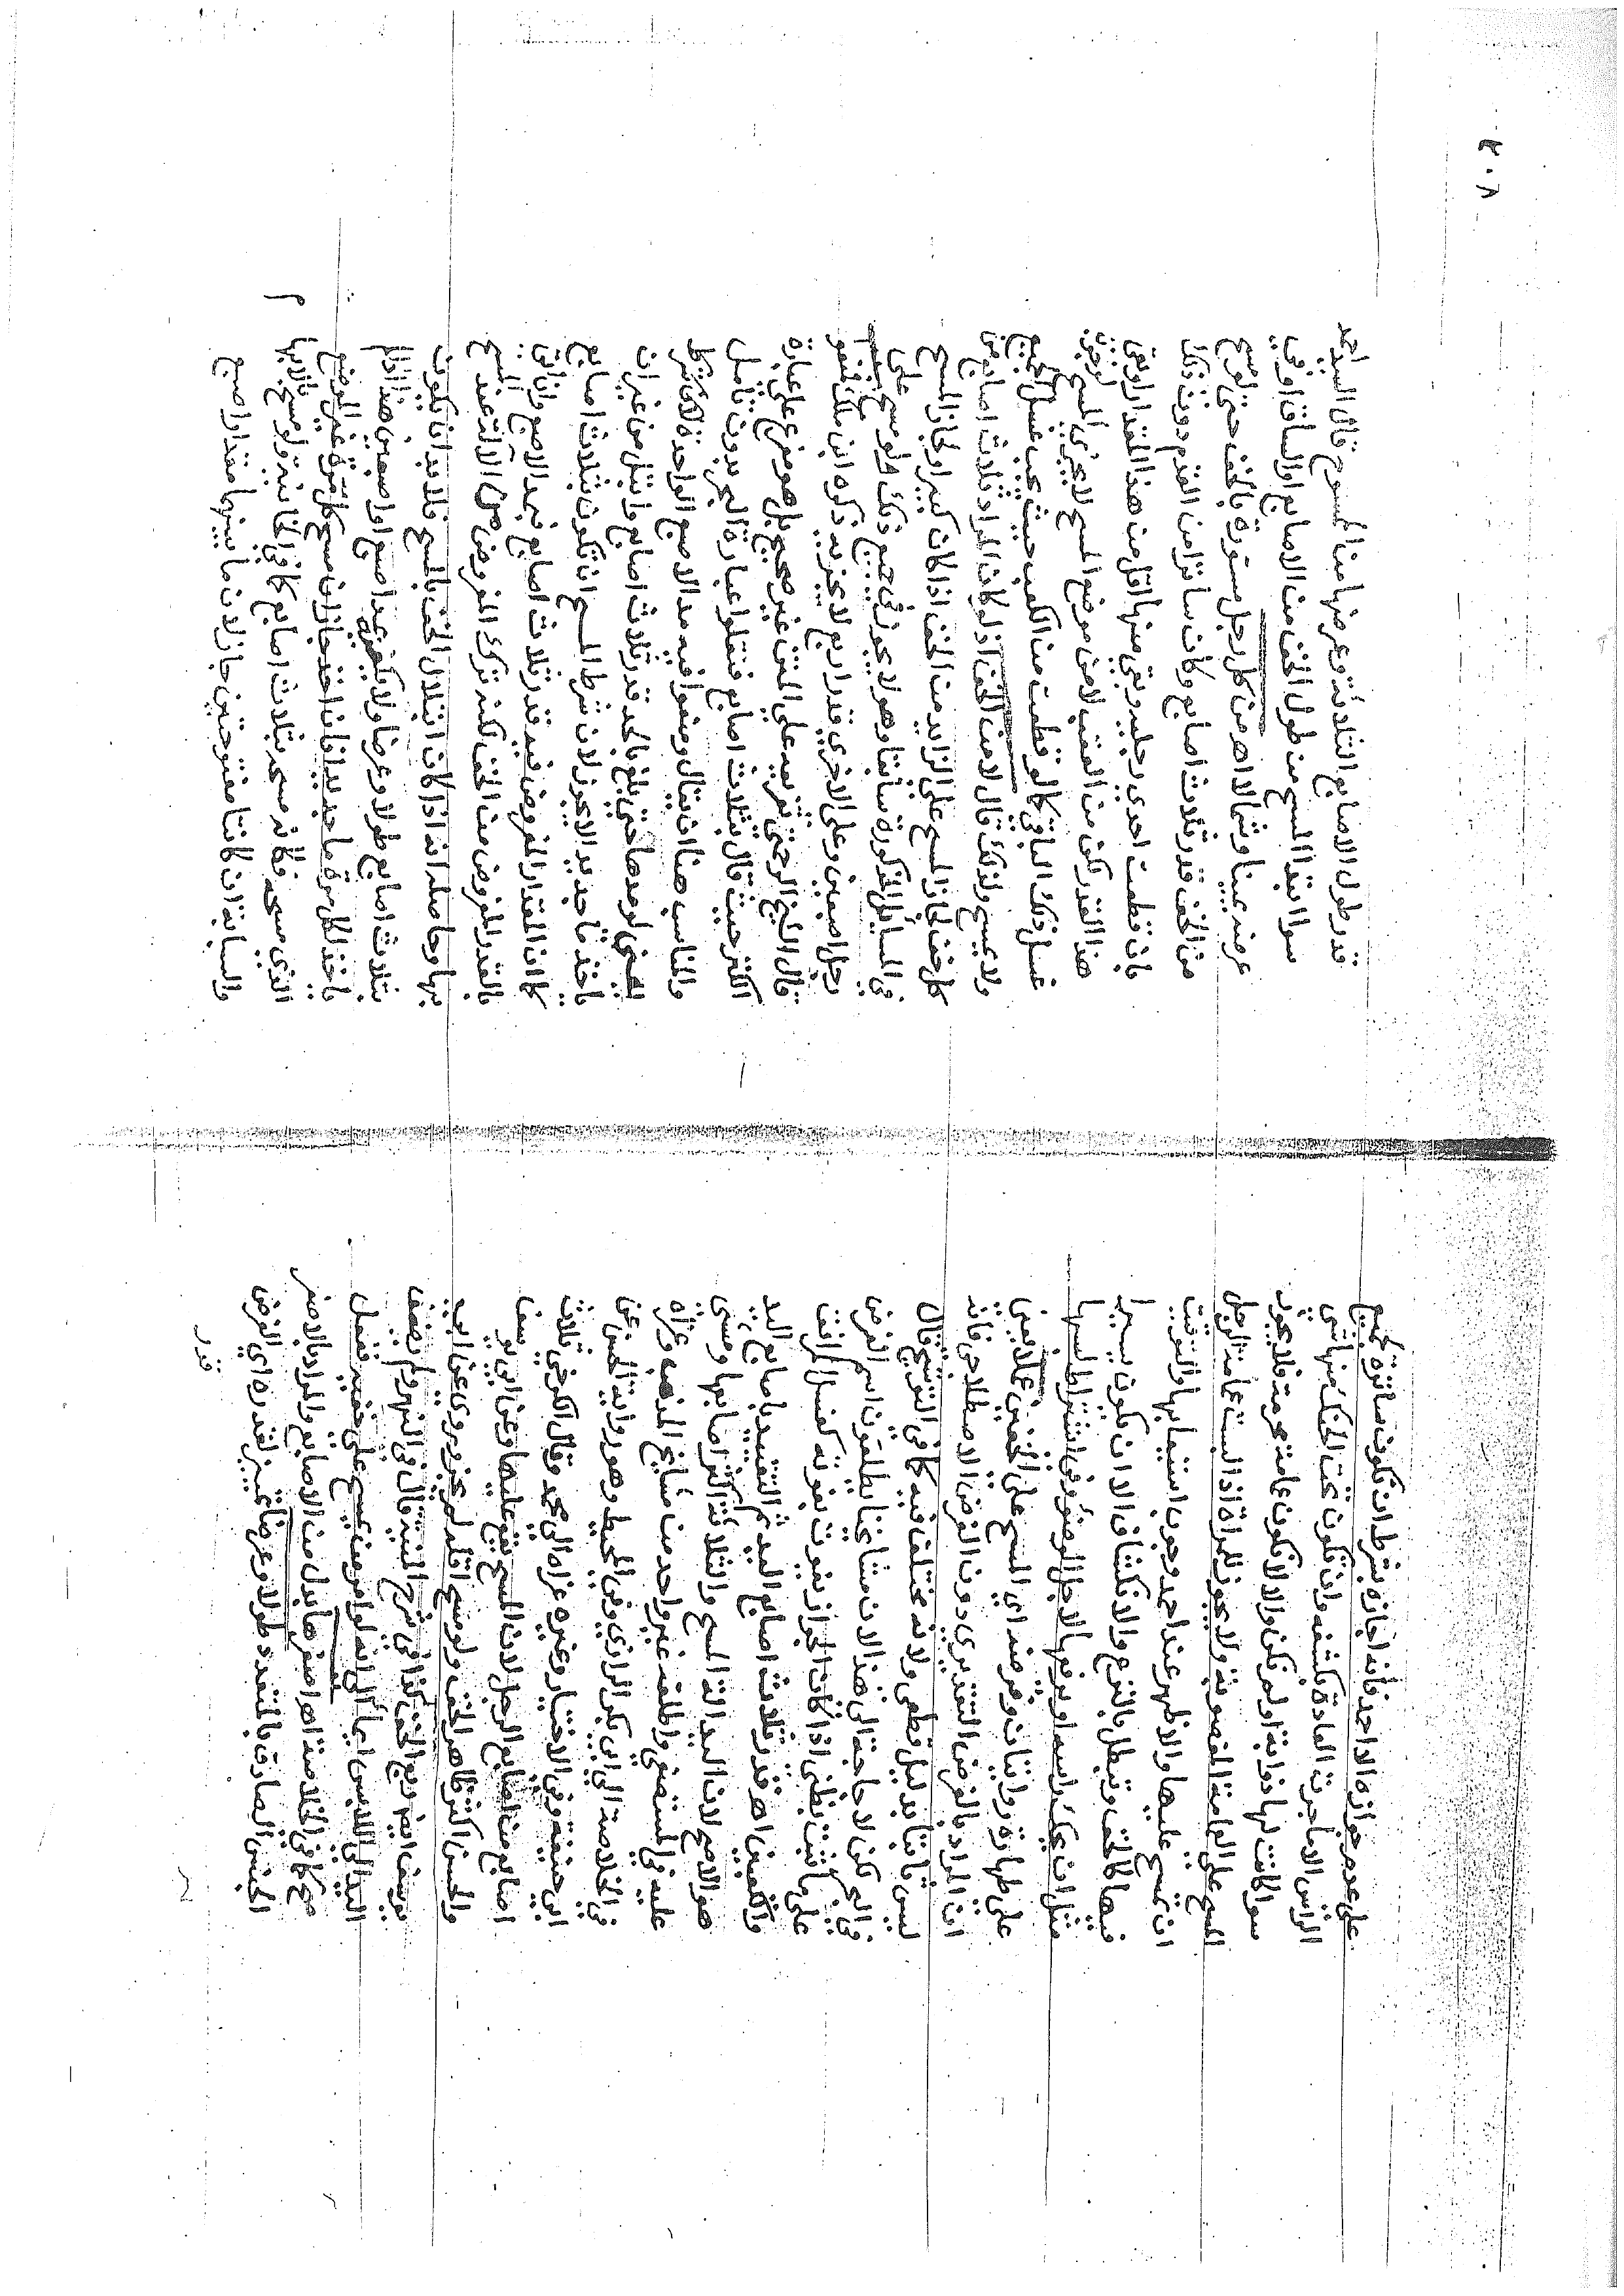 على عدم جوازه الا احمد فانه اجازه بشرط ان تكون ساترة لجميع
الراس الا ما جرت العادة بكشفه وان تكون تحت الحنك منها شي
سوا كانت لها ذوابة او لم تكن والا تكون عمامة محرمة فلا يجوز
المسح على العمامة المغصوبة ولا يجوز للمراة اذا لبست عمامة الرجل
ان تمسح عليها والاظهر عند احمد وجوب استيعابها والتوقيت
فيها كالخف وتبطل بالنزع والانكشاف الا ان يكون يسيرا
مثل ان يحك راسه او يرفعها لاجل الوضوء وفي اشتراط لبسها
على طهارة روايتان وفرضه اي المسح على الخفين عملا يعني
ان المراد بالفرض التقديري دون الفرض الاصطلاحي فانه
ليس ثابتا بدليل قطعي ولانه مختلف فيه كما في التوشيح قال
في البحر لكن لا حاجة الى هذا لان مشايخنا يطلقون اسم الفرض
على ما ثبت بظني اذا كان الجواز يفوت بفوته كغسل المرافق
والكعبين اه قدر ثلاث اصابع اليد ثم التقييد باصابع اليد
هو الاصح لان اليد الة المسح والثلاثة اكثر اصابعها ومشى
عليه في المستصفى واطلقه غير واحد من مشايخ المذهب وعزاه
في الخلاصة الى ابي بكر الرازي وفي المحيط وهو رواية الحسن عن
ابي حنيفة وفي الاختيار وغيره عزاه الى محمد وقال الكرخي ثلاث
اصابع من اصابع الرجل لان المسح يقع عليها وعن ابي يوسف
والحسن اكثر ظاهر الخف ولو مسح اقله لم يجز وروي عن ابي
يوسف ايضا ربع الخف كذا في شرح المنية قال في النهر ولم يضف
اليد الى اللابس ايماء الى انه لو امر من يمسح على خفيه ففعل
صح كما في الخلاصة اه اصغرها بدل من الاصابع والمراد بالاصغر
الجنس الصادق بالمتعدد طولا وعرضا تمييز لقدره اي الفرض
قدر
٢٠٨
قدر طول الاصابع الثلاثة وعرضها من الممسوح قال السيد احمد
سوا ابتدا المسح من طول الخف من الاصابع او الساق او في
عرضه يمينا وشمالا اه من كل رجل مستورة بالخف حتى لو مسح
من الخف قدر ثلاث اصابع وكانت ساترا من القدم دون ذلك
بان قطعت احدى رجليه وبقي منها اقل من هذا المقدار او بقي
هذا القدر لكن من العقب لا من موضع المسح لا يجزي المسح لوجوب
غسل ذلك الباقي كما لو قطعت من الكعب حيث يجب غسل الجميع
ولا يمسح ولذلك قال لا من الخف اذ لو كان المراد ثلاث اصابع من
كل خف لجاز المسح على الزايد من الخف اذا كان كبيرا ولجاز المسح
في المسايل المذكورة سابقا وهو لا يجوز في جميع ذلك ولو مسح على
رجل اصبعين وعلى الاخرى قدر اربع لا يجزيه ذكره ابن ملك فقول
قال الشيخ الرحمتي تفريعه على المتن غير صحيح بل هو مفرع على عبارة
الكنز حيث قال بثلاث اصابع فنقلوا عبارة البحر بدون تامل
والمناسب هنا ان يقال ومنعوا فيه مد الاصبع الواحدة
يعني لو مدها حتى بلغ بالمد قدر ثلاث اصابع وابتل من غير ان
ياخذ ماء جديدا لا يجوز لان شرط المسح ان تكون بثلاث اصابع
كما ان المقدار المفروض فيه قدر ثلاث اصابع فبمد الاصبع وان اتى
بالقدر المفروض من الخف لكنه ترك المفروض من الآلة عند المسح
بها وحاصله انه اذا كان ابتلال الخف بالمسح فلا بد ان يكون
بثلاث اصابع طولا وعرضا ولا يكفي مد اصبع او اصبعين هذا اذا لم
ياخذ لكل مرة ماء جديدا فان اخذ جاز ان مسح كل مرة غير الموضع
الذي مسحه فكانه مسحه بثلاث اصابع كما في الخانية ولو مسح بالابهام
والسبابة ان كانتا مفتوحتين جاز لان ما بينهما مقدار اصبع